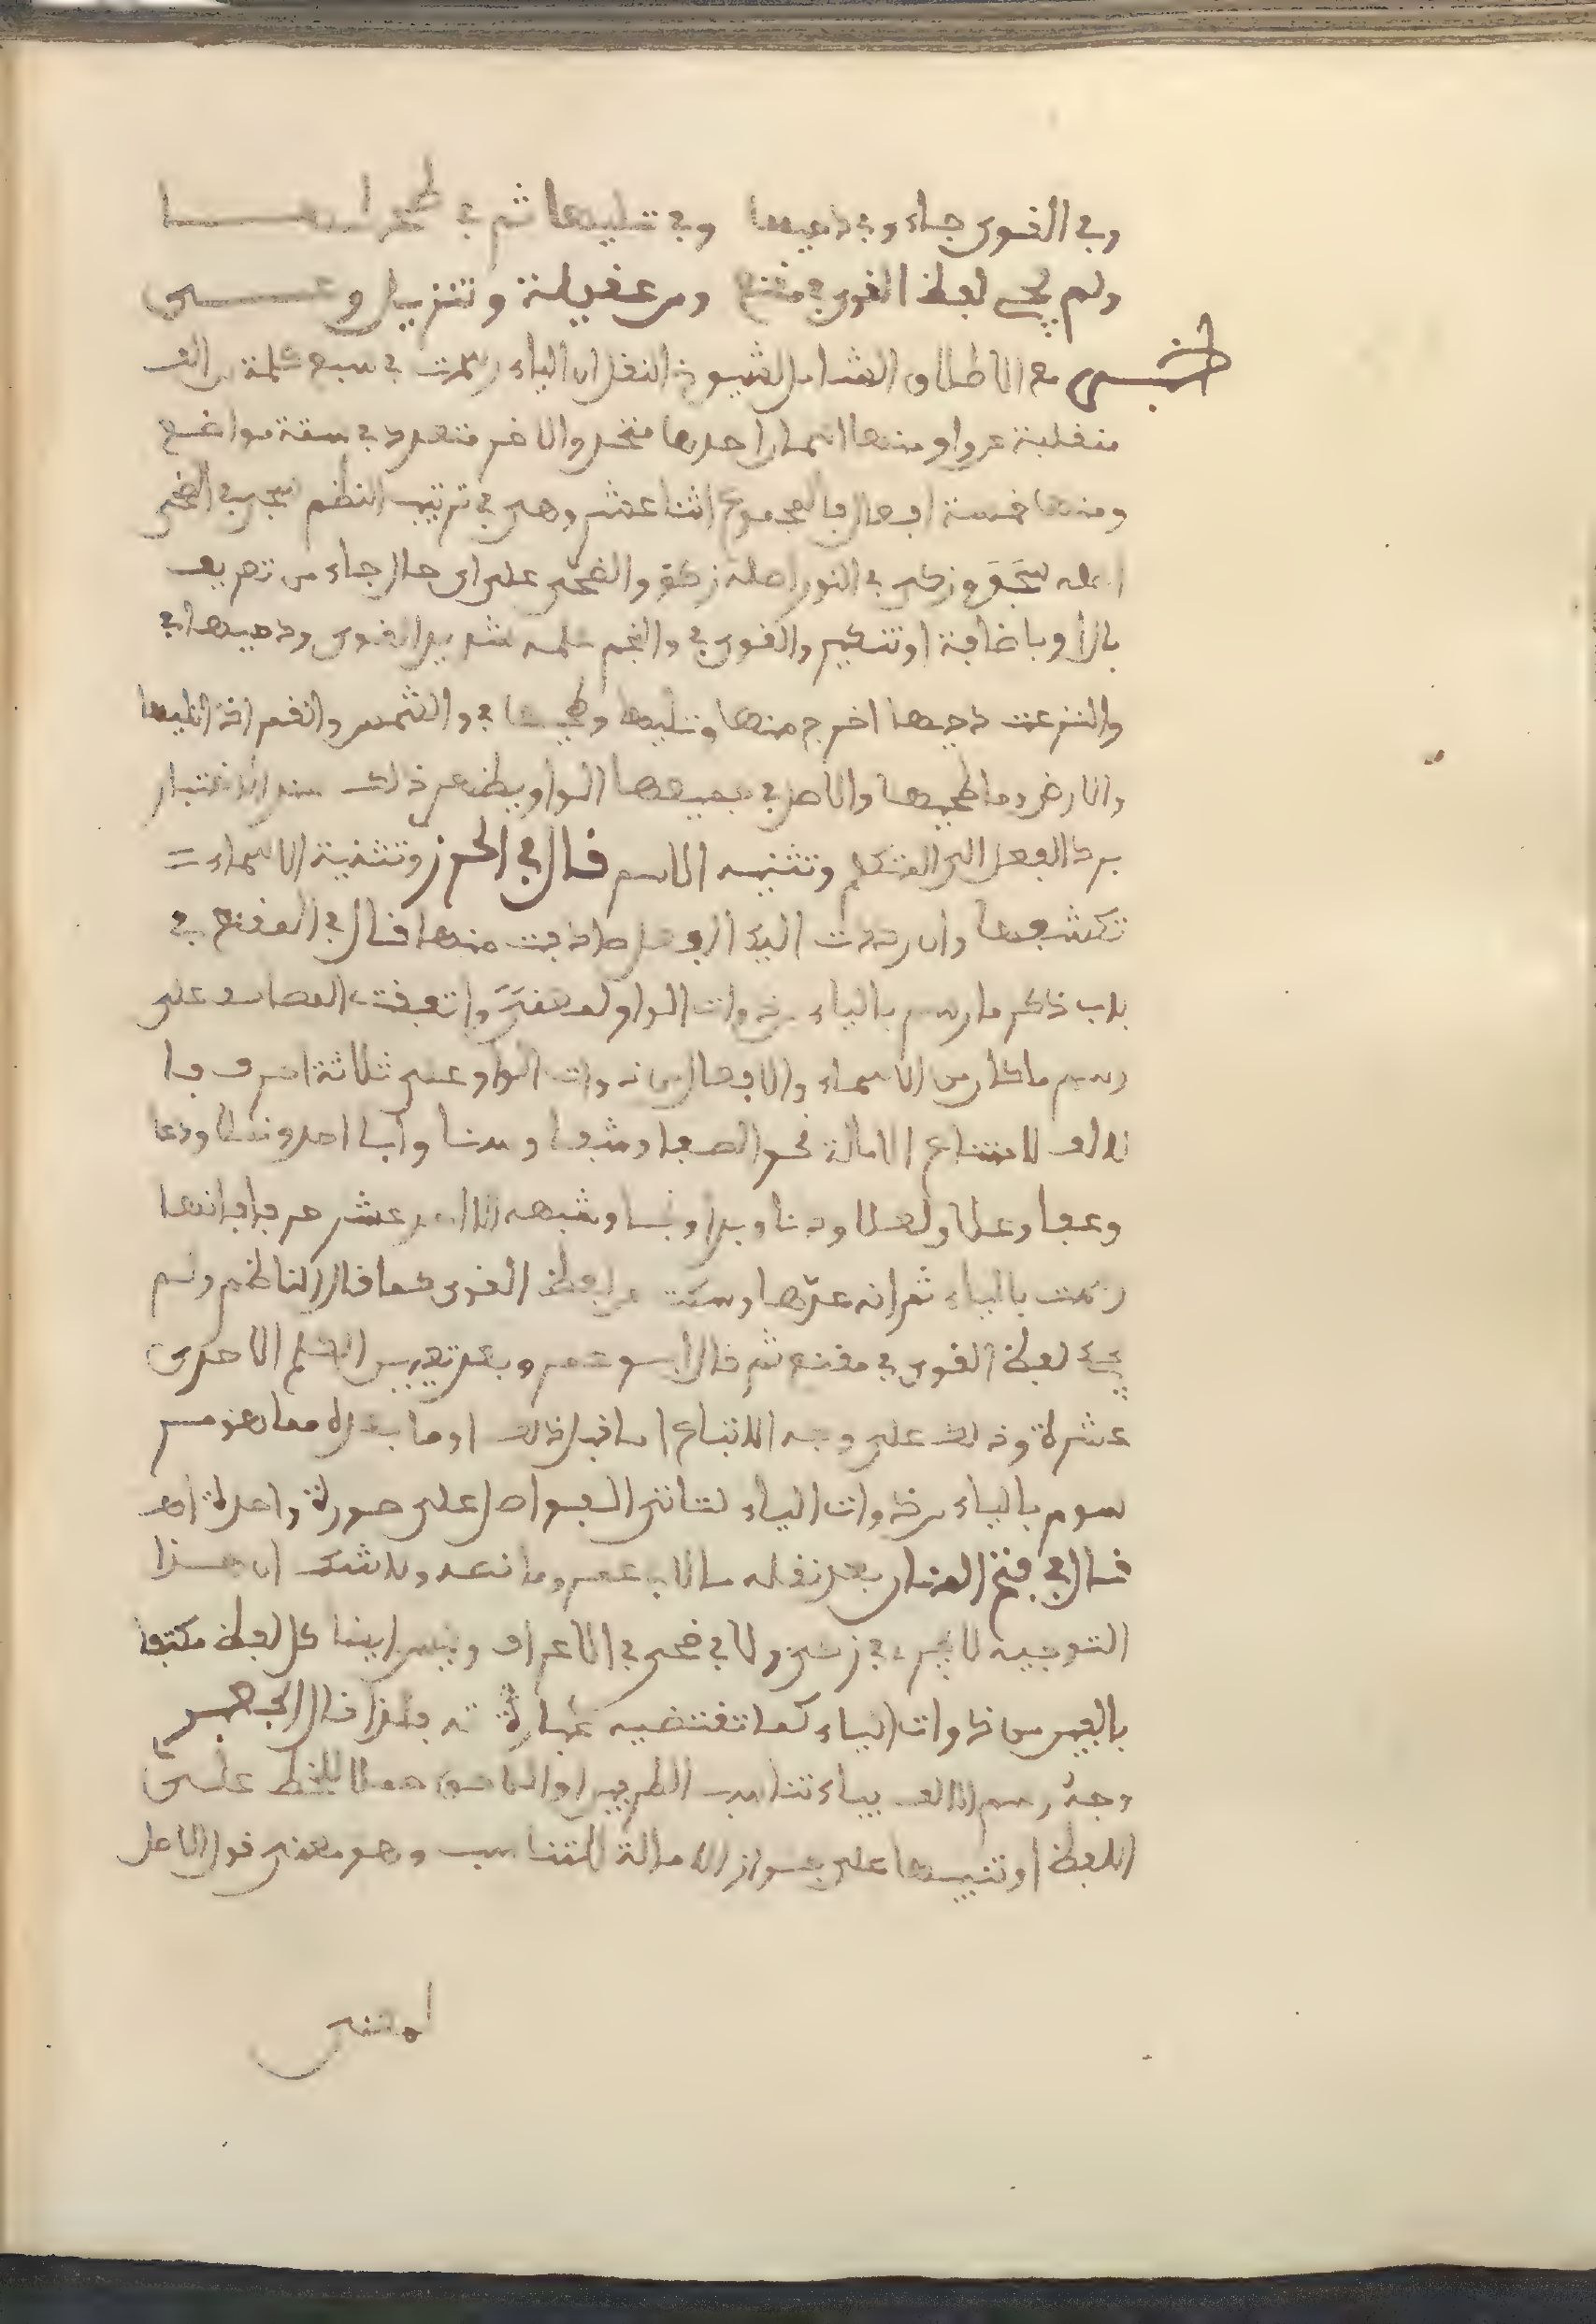 وفي القوى جاء وفي دحيها وفي تليها ثم في طحيها
ولم يجئ لفظ القوى في مقنع ومن عقيلة وتنزيل وعى
اخبر مع الاطلاق الشامل لشيوخ النقل ان الياء رسمت في سبع كلمة من الف
منقلبة عن واو منها اسمان احدها متحد والاخر متعدد في ستة مواضع
ومنها خمسة افعال فالمجموع اثنا عشر وهي في ترتيب النظم سجى في الضحى
اصله سَجَوَ وزكى في النور اصله زكو والضحى على اي حال جاء من تعريف
بال او باضافة او تنكير والقوى في والنجم علمه شديد القوى ودحيها في
والنزعت دحيها اخرج منها وتليها وطحيها في والشمس والقمر اذا تليها
والارض وما طحيها والاصل في جميعها الواو يظهر ذلك عند الاختبار
برد الفعل الى المتكلم وتثنية الاسم قال في الحرز وتثنية الاسماء =
تكشفها وان رددت اليك الفعل صادفت منها قال في المقنع في
باب ذكر ما رسم بالياء من ذوات الواو لمعنى واتفقت المصاحف على
رسم ما كان من الاسماء والافعال من ذوات الواو على ثلاثة احرف فا
لالف لامتناع الامالة نحو الصفا وشفا وسنا وابا احد وخلا ودعا
وعفا وعلا ولعلا ودنا وبدا ونجا وشبهه الا احد عشر حرفا فانها
رسمت بالياء ثم انه عدّها وسكت عن لفظ القوى كما قال الناظم ولم
يجئ لفظ القوى في مقنع ثم قال ابو عمرو بعد تعيين الكلم الاحدى
عشرة وذلك على وجه الاتباع لما قبل ذلك او ما بعده مما هو مر
سوم بالياء من ذوات الياء لتاتي الفواصل على صورة واحدة اهـ
قال في فتح المنان بعد نقله ما لابي عمرو ما نصه ولا شك ان هذا
التوجيه لا يجري في زكى ولا في ضحى في الاعراف وليس ايضا كل لفظ مكتنفا
بالغير من ذوات الياء كما تقتضيه عبارته فلذا قال الجعبري
وجه رسم الالف بياء تناسب الطرفين او اللاحق حملا للخط على
اللفظ او تنبيها على جواز الامالة للتناسب وهو معنى قول الاصل
لمعنى